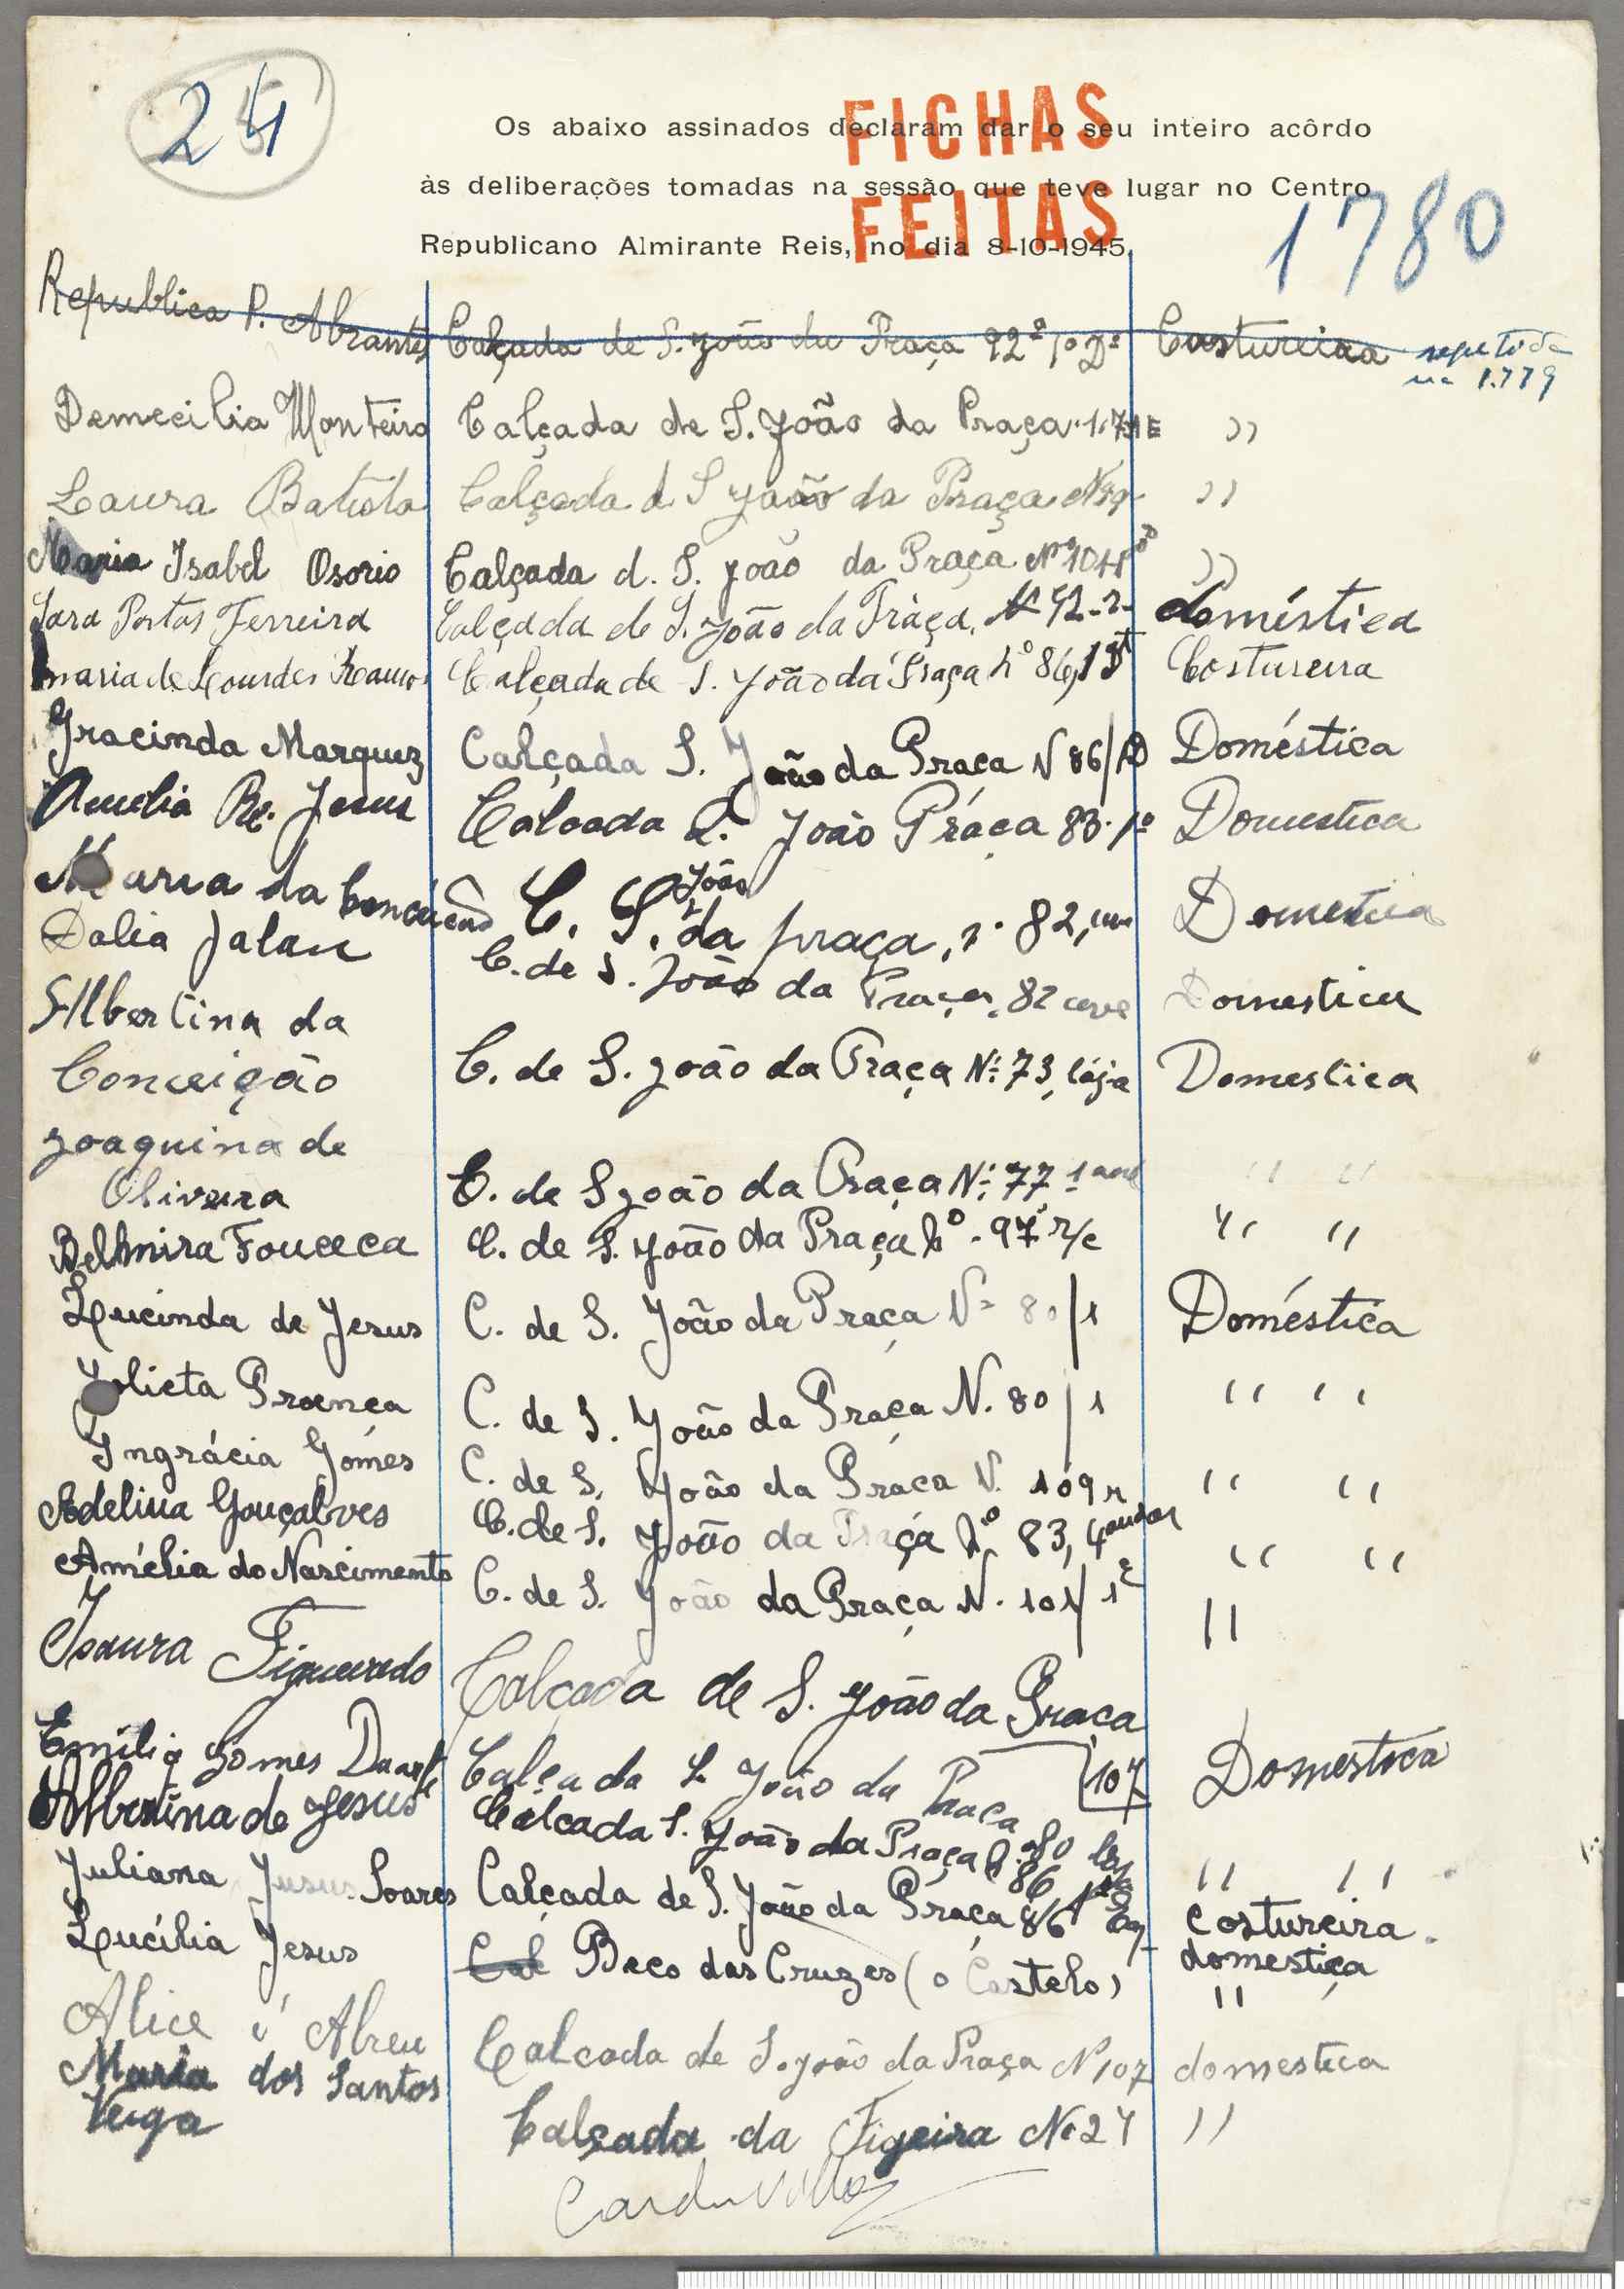 24
FICHAS
FEITAS
Os abaixo assinados declaram dar o seu inteiro acôrdo
às deliberações tomadas na sessão que teve lugar no Centro
Republicano Almirante Reis, no dia 8-10-1945.
1780
Republica P. Abrantes Calçada de S. João da Praça 92º 1º Dº Costureira repetida na 1.779
Demecilia Monteiro Calçada de S. João da Praça ))
Laura Batista Calçada d S João da Praça ))
Maria Isabel Osorio Calçada d. S. João da Praça Nº 104 ))
Sara Portas Ferreira Calçada de S. João da Praça, Nº 92-2- doméstica
Maria de Lourdes Ramos Calçada de S. João da Praça nº 86, Costureira
Gracinda Marquez Calçada S. João da Praça N 86/ Doméstica
Amelia Re. Jesus Calcada S. João Praça 83-1º Domestica
Maria da Conceicão C. S. João da praça, nº 82, Domestica
Dalia Jalan C. de S. João da Praça, 82 cave Domestica
Albertina da
Conceição C. de S. João da Praça Nº 73, lója Domestica
Joaquina de
Oliveira C. de S João da Praça Nº 77 1º and " "
Belmira Fouceca C. de S. João da Praça nº 97 r/c " "
Lucinda de Jesus C. de S. João da Praça Nº 80/1 Doméstica
Julieta Proença C. de S. João da Praça N. 80/1 " "
Ingrácia Gomes C. de S. João da Praça N. 109 r " "
Adelina Gonçalves C. de S. João da Praça nº 83, 4 andar " "
Amélia do Nascimento C. de S. João da Praça N. 101/1E "
Isaura Figueiredo Calçada de S. João da Praça
Emília Gomes Duarte Calçada S. João da Praça 107 Domestica
Albertina de Jesus Calcada S. João da Praça 80 " "
Juliana Jesus Soares Calçada de S. João da Praça 86 1º Esq Costureira.
Lucília Jesus Cal Beco das Cruzes (ó Castelo) domestica
"
Alice d' Abreu Calcada de S. João da Praça Nº 107 domestica
Maria dos Santos
Veiga Calçada da Figeira Nº 24 ))